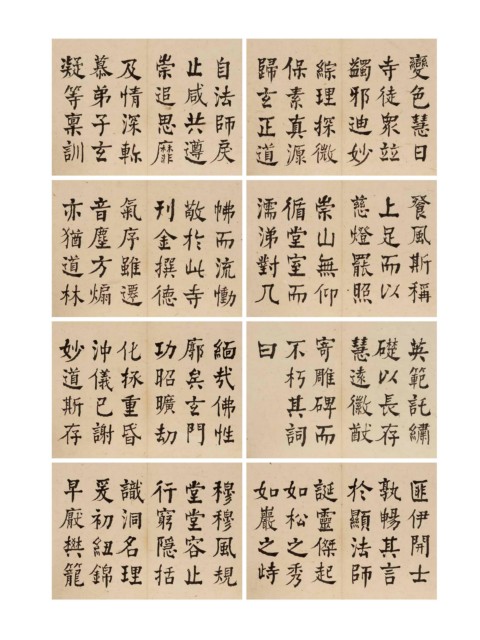 變色慧日
寺徒眾竝
蠲邪迪妙
綜理探微
保素真源
歸玄正道
自法師戾
止咸共遵
崇追思靡
及情深斬
慕弟子玄
凝等稟訓
餐風斯稱
上足而以
慈燈罷照
崇山無仰
循堂室而
濡涕對几
而流慟
敬於此寺
刊金撰德
氣序雖遷
音塵方煽
亦猶道林
英範託繡
礎以長存
慧遠徽猷
寄雕碑而
不朽其詞
曰
緬哉佛性
廓矣玄門
功昭曠劫
化拯重昏
沖儀已謝
妙道斯存
匪伊開士
孰暢其言
於顯法師
誕靈傑起
如松之秀
如巖之峙
穆穆風規
堂堂容止
行窮隱括
識洞名理
爰初紐錦
早厭樊籠